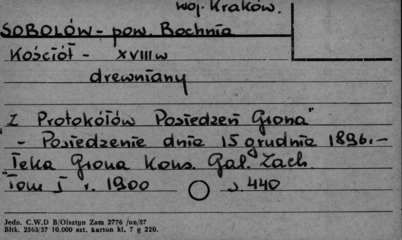 woj. Kraków.
SOBOLÓW - pow. Bochnia
Kościół - XVIII w
drewniany
"Z Protokółów Posiedzeń Grona"
- Posiedzenie dnia 15 grudnia 1896. -
Teka Grona Kons. Gal. Zach.
Tom I r. 1900 s. 440
Jedn. C.W.D B/Olsztyn Zam 2776 /an/57
Bltk. 2563/57 10.000 szt. karton kl. 7 g 220.